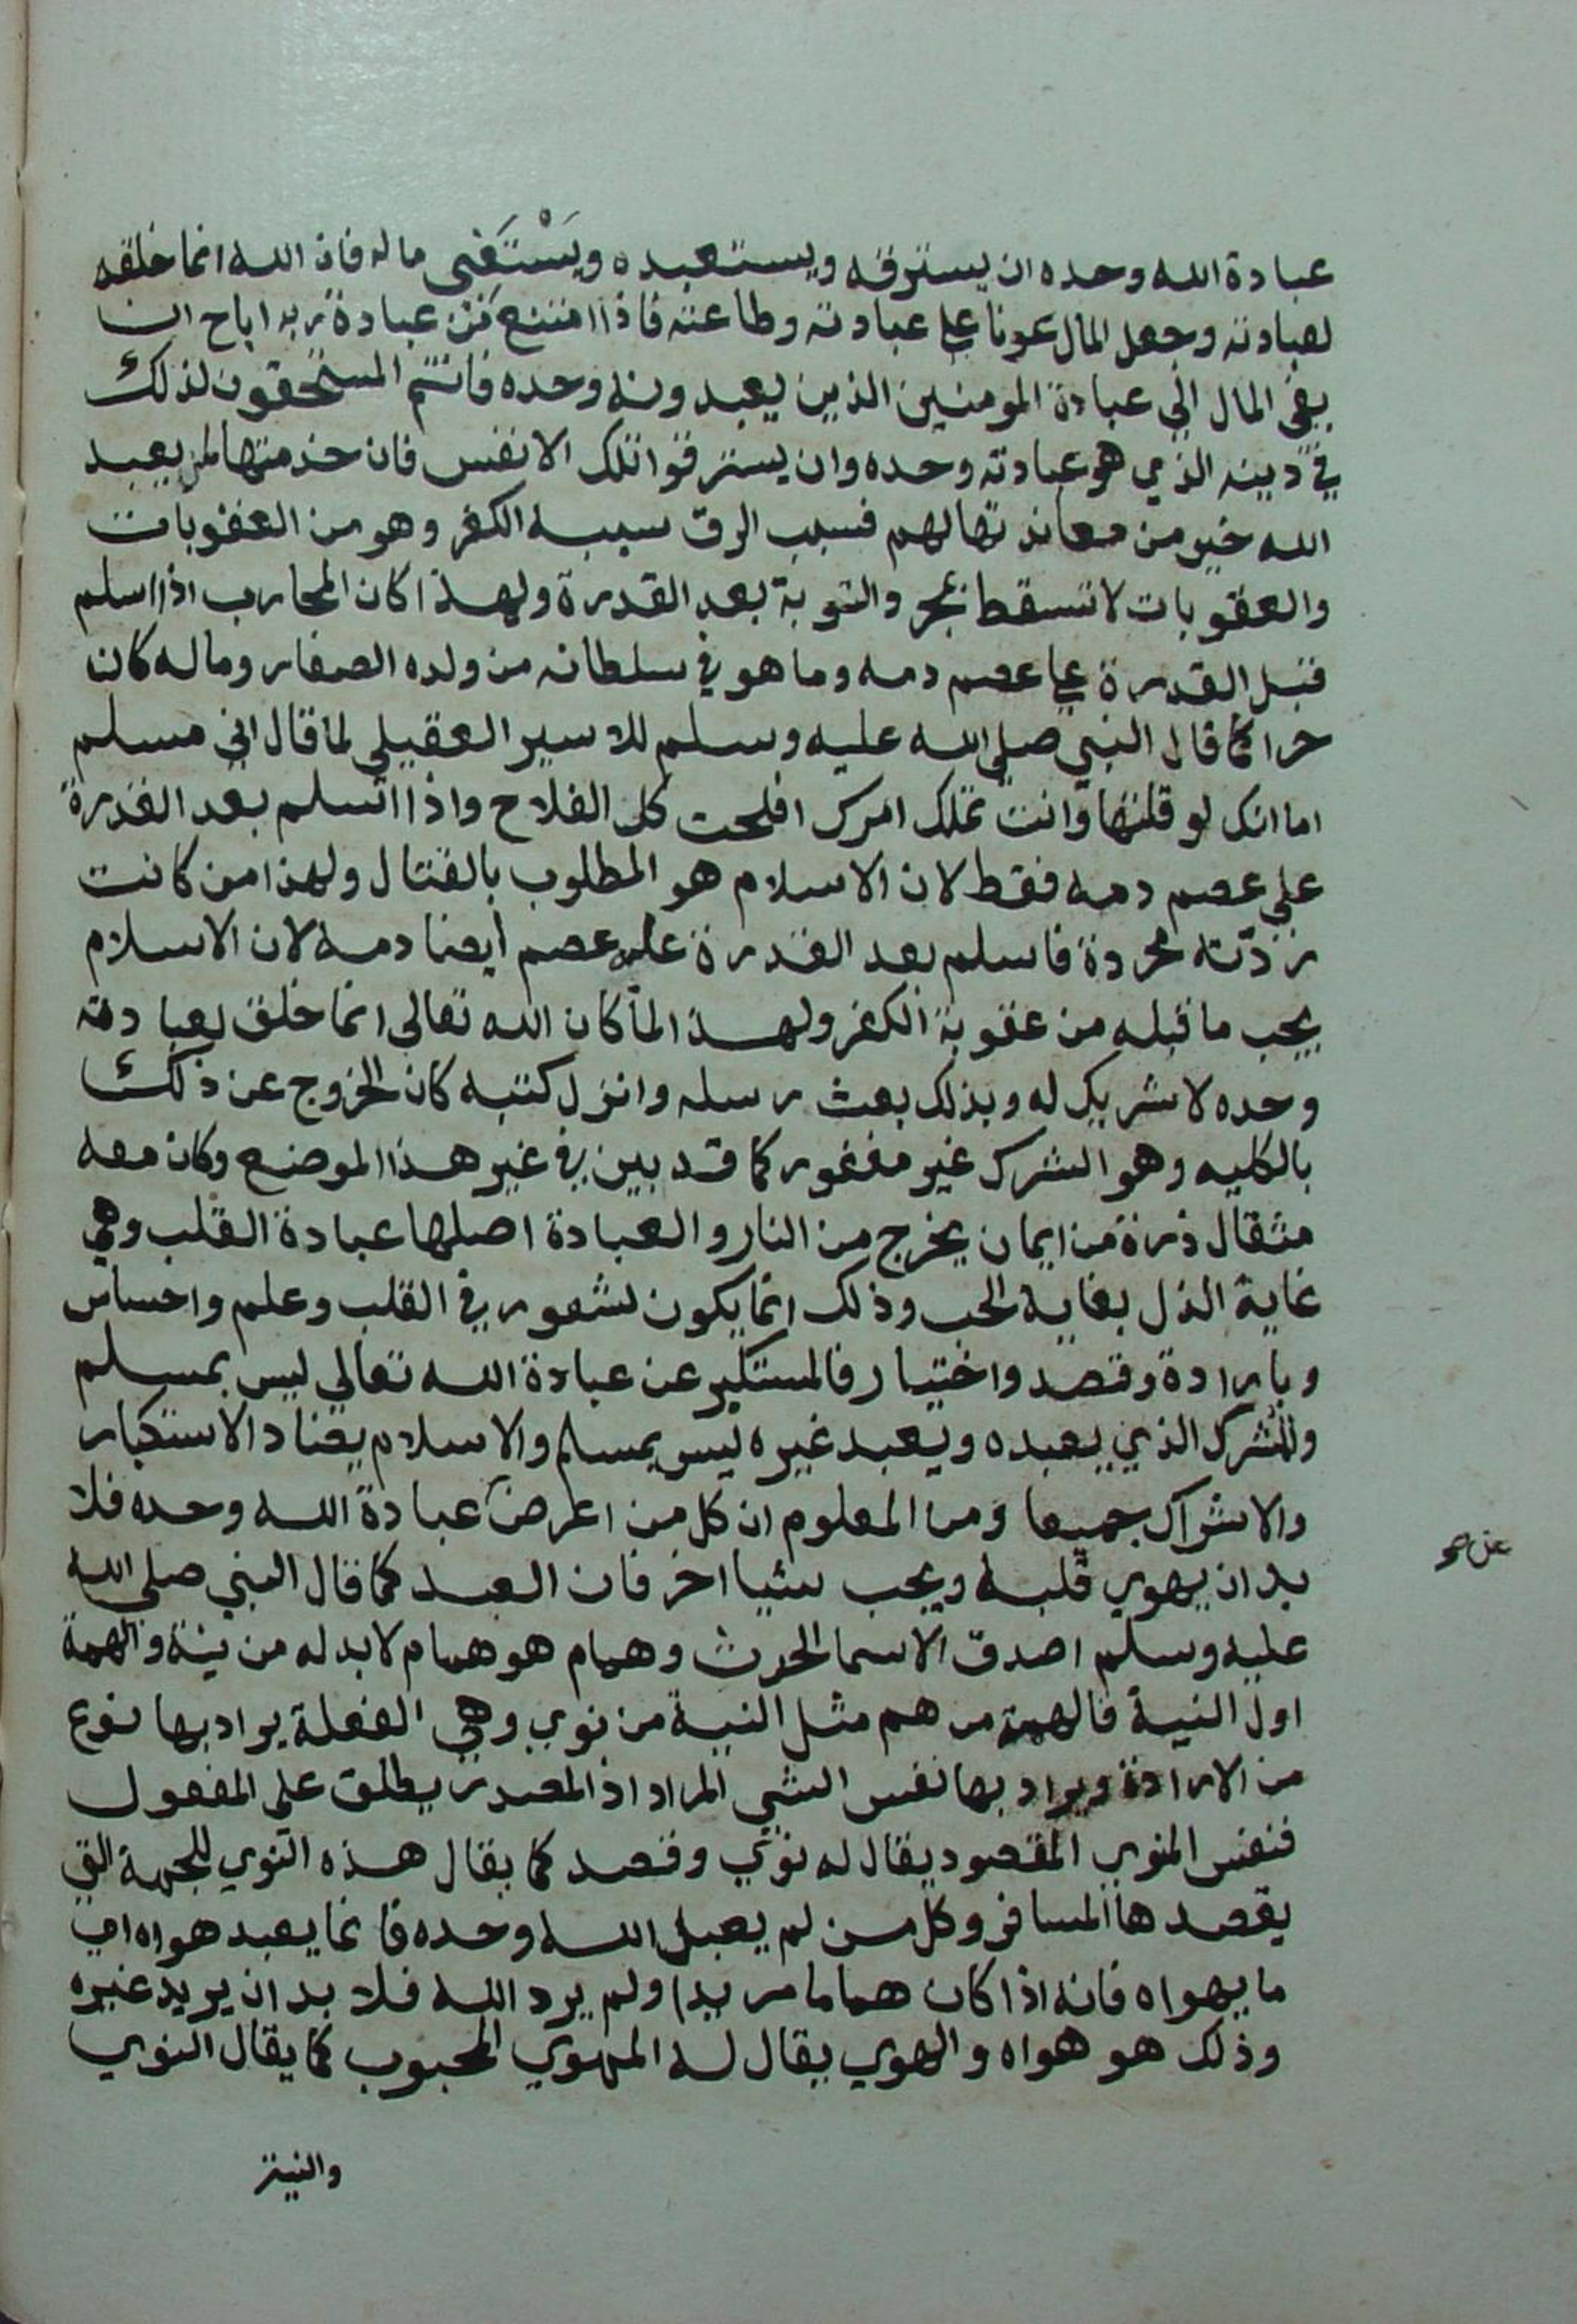 عبادة الله وحده ان يسترقه ويستعبده ويَسْتَفَي ماله فان الله انما خلقه
لعبادته وجعل المال عونا علي عبادته وطاعته فاذا امتنع من عبادة ربه اباح ان
يفي المال الي عبادة المومنين الذين يعبدونه وحده فانتم المستحقون لذلك
في دينه الذي هو عبادته وحده وان يسترقوا تلك الانفس فان خدمتها لمن يعبد
الله خير من معاندتها لهم فسبب الرق سببه الكفر وهو من العقوبات
والعقوبات لا تسقط بمجرد التوبة بعد القدرة ولهذا كان المحارب اذا اسلم
قبل القدرة عليه عصم دمه وما هو في سلطانه من ولده الصغار وماله كان
حرا كما قال النبي صلي الله عليه وسلم للاسير العقيلي لما قال اني مسلم
اما انك لو قلتها وانت تملك امرك افلحت كل الفلاح واذا اسلم بعد القدرة
علي عصم دمه فقط لان الاسلام هو المطلوب بالقتال ولهذا من كانت
ردته مجردة فاسلم بعد القدرة عليه عصم ايضا دمه لان الاسلام
يجب ما قبله من عقوبة الكفر ولهذا لما كان الله تعالى انما خلق لعبادته
وحده لا شريك له وبذلك بعث رسله وانزل كتبه كان الخروج عن ذلك
بالكليه وهو الشرك غير مغفور كما قد بين في غير هذا الموضع وكان معه
مثقال ذرة من ايمان يخرج من النار والعبادة اصلها عبادة القلب وهي
غاية الذل بغاية الحب وذلك انما يكون لشعور في القلب وعلم واحساس
وبارادة وقصد واختيار فالمستكبر عن عبادة الله تعالي ليس بمسلم
والمشرك الذي يعبده ويعبد غيره ليس بمسلم والاسلام يضاد الاستكبار
والاشراك جميعا ومن المعلوم ان كل من اعرض عبادة الله وحده فلا
عن صح
بد ان يهوي قلبه ويحب شيا اخر فان العبد كما قال النبي صلي الله
عليه وسلم اصدق الاسما الحرث وهمام هو همام لا بد له من نية والهمة
اول النية فالهمة من هم مثل النية من نوي وهي الفعلة يراد بها نوع
من الارادة ويراد بها نفس الشي المراد اذ المصدر يطلق على المفعول
فنفس المنوي المقصود يقال له نوي وقصد كما يقال هذه النوي للجهة التي
يقصدها المسافر وكل من لم يعبد الله وحده فانما يعبد هواه اي
ما يهواه فانه اذا كان هماما مريدا ولم يرد الله فلا بد ان يريد غيره
وذلك هو هواه والهوي يقال له المهوي المحبوب كما يقال النوي
والنية